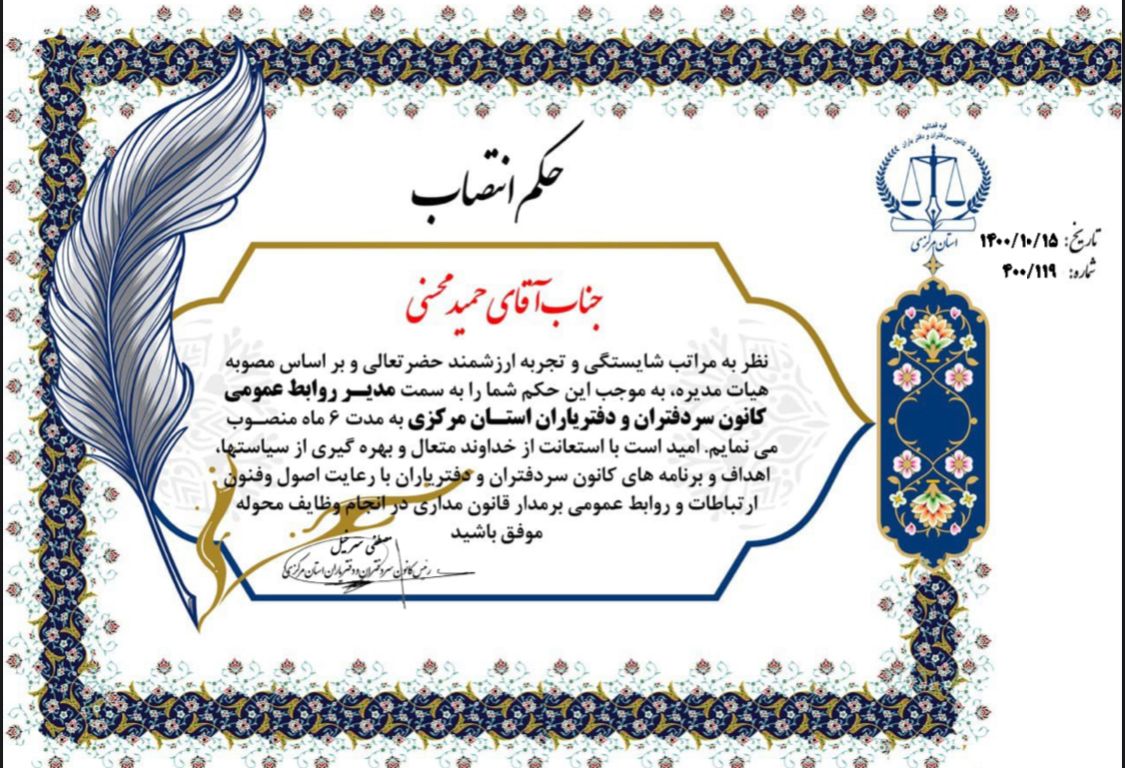 قوه قضائیه
کانون سردفتران و دفتریاران
استان مرکزی
تاریخ: ۱۴۰۰/۱۰/۱۵
شماره: ۴۰۰/۱۱۹
حکم انتصاب
جناب آقای حمید محسنی
نظر به مراتب شایستگی و تجربه ارزشمند حضرتعالی و بر اساس مصوبه
هیات مدیره، به موجب این حکم شما را به سمت مدیر روابط عمومی
کانون سردفتران و دفتریاران استان مرکزی به مدت ۶ ماه منصوب
می نمایم. امید است با استعانت از خداوند متعال و بهره گیری از سیاستها،
اهداف و برنامه های کانون سردفتران و دفتریاران با رعایت اصول وفنون
ارتباطات و روابط عمومی برمدار قانون مداری در انجام وظایف محوله
موفق باشید
مصطفی
رئیس کانون سردفتران و دفتریاران استان مرکزی